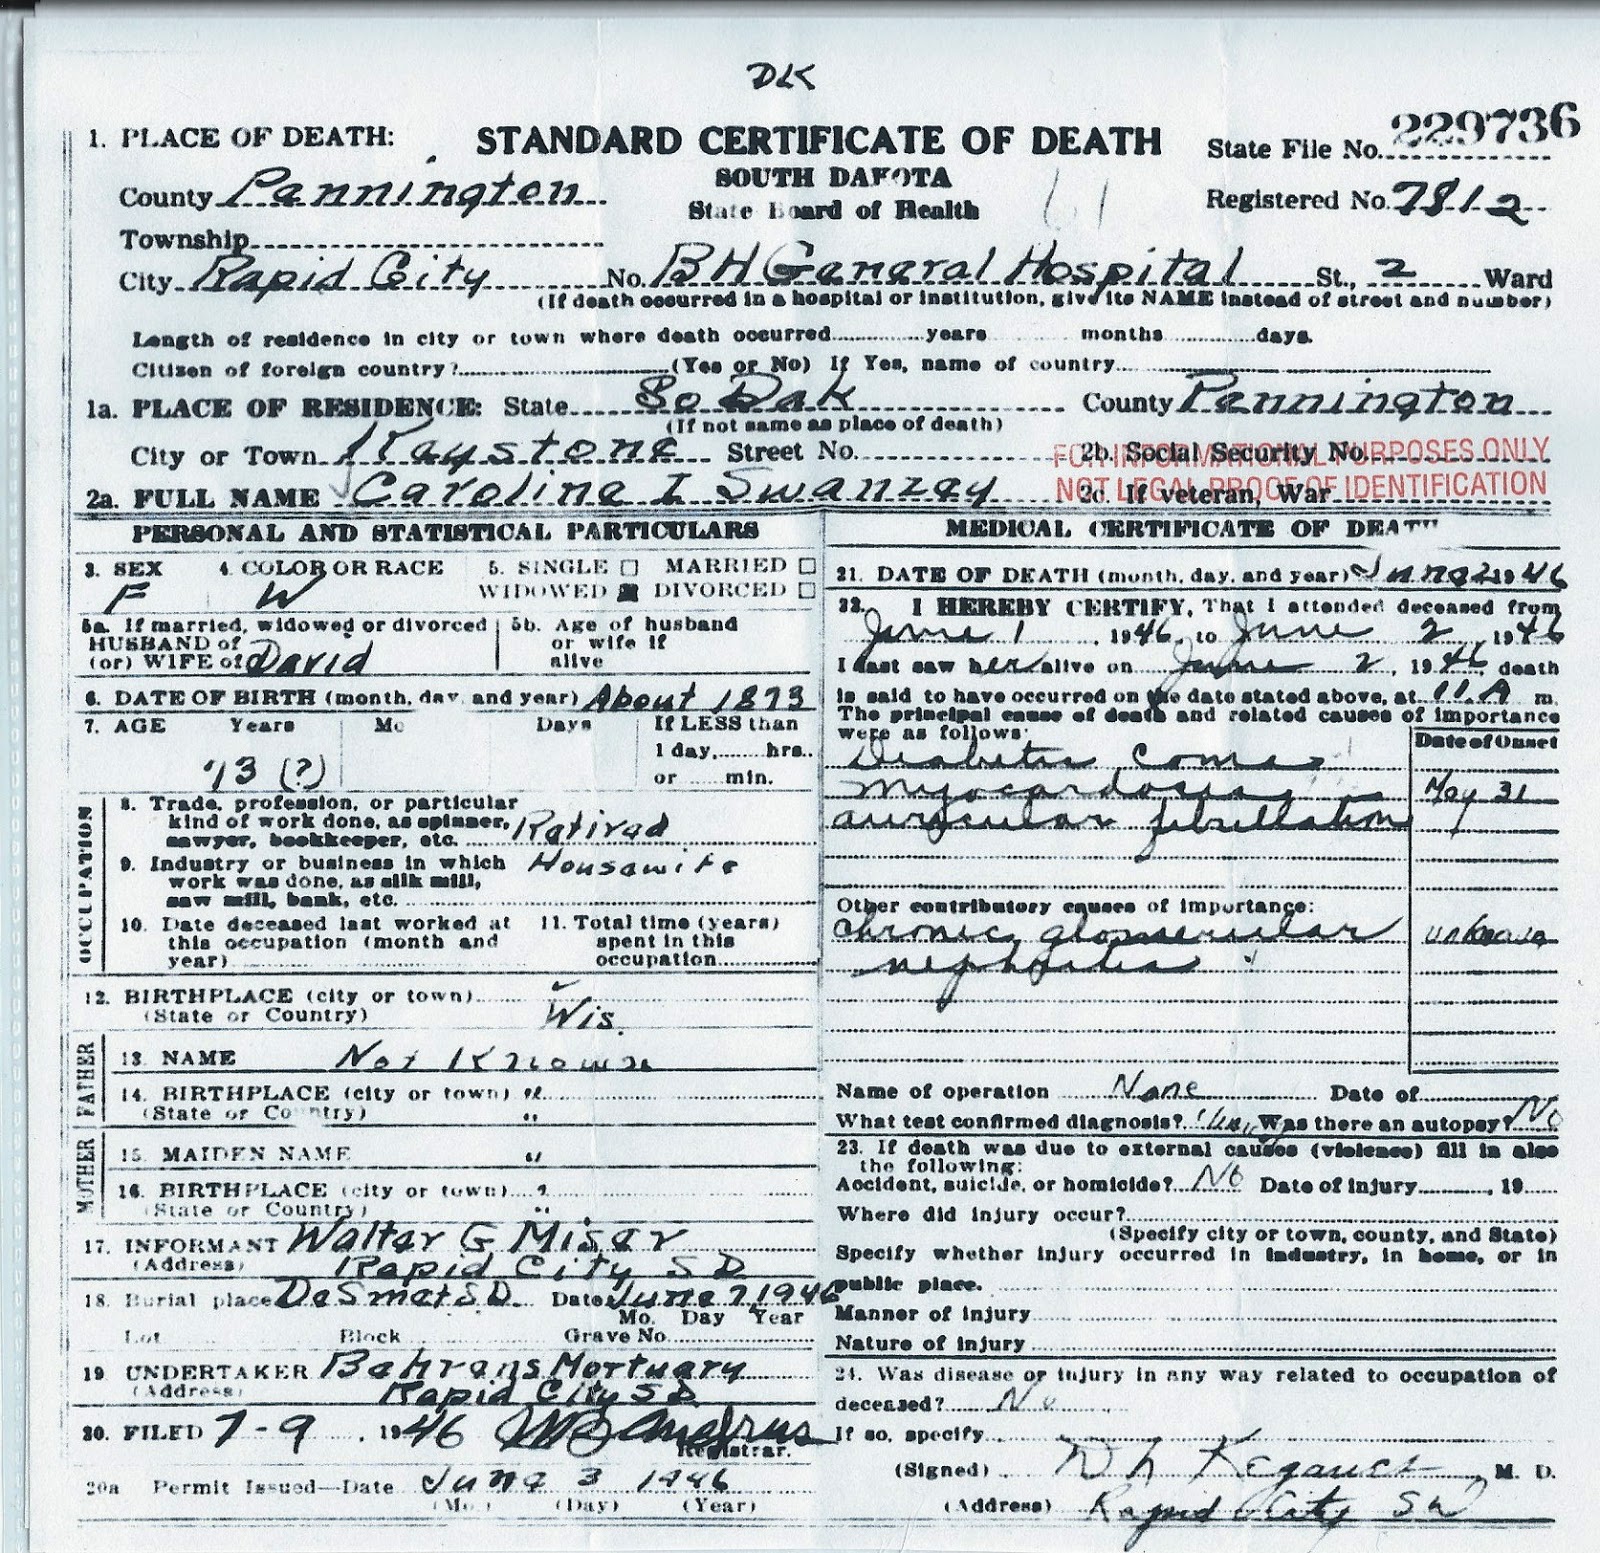 DLK
1. PLACE OF DEATH: STANDARD CERTIFICATE OF DEATH State File No. 229736
County Pennington SOUTH DAKOTA Registered No. 7812
State Board of Health 61
Township
City Rapid City No. BH General Hospital St., 2 Ward
(If death occurred in a hospital or institution, give its NAME instead of street and number)
Length of residence in city or town where death occurred years months days.
Citizen of foreign country? (Yes or No) If Yes, name of country
1a. PLACE OF RESIDENCE: State So Dak County Pennington
(If not same as place of death)
City or Town Keystone Street No. 2b. Social Security No.
FOR INFORMATIONAL PURPOSES ONLY
2a. FULL NAME Caroline I Swanzey 2c. If veteran, War
NOT LEGAL PROOF OF IDENTIFICATION
PERSONAL AND STATISTICAL PARTICULARS
3. SEX 4. COLOR OR RACE 5. SINGLE MARRIED
F W WIDOWED DIVORCED
5a. If married, widowed or divorced 5b. Age of husband
HUSBAND of or wife if
(or) WIFE of David alive
6. DATE OF BIRTH (month, day, and year) About 1873
7. AGE Years Mo Days If LESS than
1 day, hrs.
73 (?) or min.
OCCUPATION
8. Trade, profession, or particular
kind of work done, as spinner, Retired
sawyer, bookkeeper, etc.
9. Industry or business in which Housewife
work was done, as silk mill,
saw mill, bank, etc.
10. Date deceased last worked at 11. Total time (years)
this occupation (month and spent in this
year) occupation
12. BIRTHPLACE (city or town)
(State or Country) Wis.
FATHER
13. NAME Not Known
14. BIRTHPLACE (city or town) "
(State or Country) "
MOTHER
15. MAIDEN NAME "
16. BIRTHPLACE (city or town) "
(State or Country) "
17. INFORMANT Walter G Miser
(Address) Rapid City SD
18. Burial place DeSmet S.D. Date June 7, 1946
Mo. Day Year
Lot Block Grave No.
19 UNDERTAKER Behrens Mortuary
(Address) Rapid City SD
20. FILED 7-9, 1946
Registrar.
20a Permit Issued—Date June 3 1946
(Mo.) (Day) (Year)
MEDICAL CERTIFICATE OF DEATH
21. DATE OF DEATH (month, day, and year) June 2 1946
22. I HEREBY CERTIFY, That I attended deceased from
June 1, 1946, to June 2, 1946
I last saw her alive on June 2, 1946, death
is said to have occurred on the date stated above, at 11.A m.
The principal cause of death and related causes of importance
were as follows: Date of Onset
Diabetic Coma
Myocardosis May 31
auricular fibrillation
Other contributory causes of importance:
Chronic glomerular unknown
nephritis
Name of operation None Date of
What test confirmed diagnosis? Was there an autopsy? No
23. If death was due to external causes (violence) fill in also
the following:
Accident, suicide, or homicide? No Date of injury , 19
Where did injury occur?
(Specify city or town, county, and State)
Specify whether injury occurred in industry, in home, or in
public place.
Manner of injury
Nature of injury
24. Was disease or injury in any way related to occupation of
deceased? No
If so, specify
(Signed) M. D.
(Address) Rapid City SD